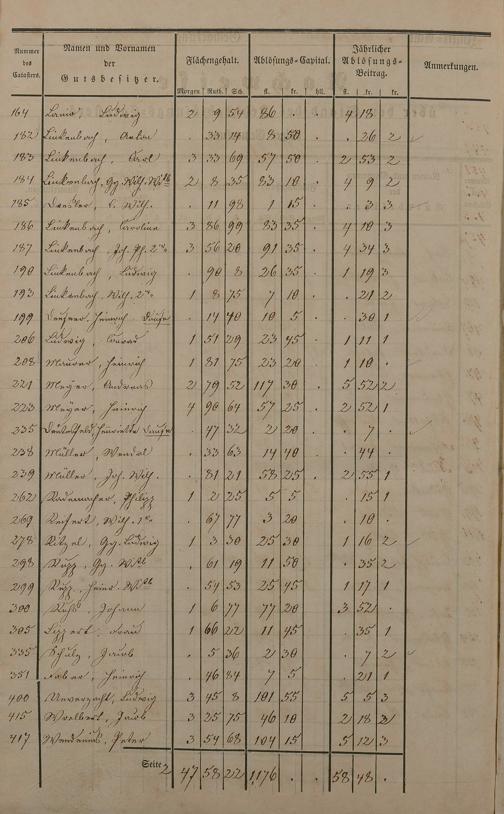 Nummer des Catasters. | Namen und Vornamen der Gutsbesitzer. | Flächengehalt. | Ablösungs-Capital. | Jährlicher Ablösungs-Beitrag. | Anmerkungen.
Morgen | Ruth. | Sch. | fl. | kr. | hll. | fl. | kr. | kr.
164 Ludwig 2 9 54 86 . . 4 18 .
182 Linkenbach, . 33 14 8 50 . . 26 2
183 Linkenbach, Carl 3 33 69 57 50 . 2 53 2
184 Linkenbach, Gg. Wilh. 2 8 35 83 10 . 4 9 2
185 Wilh. . 11 98 1 15 . . 3 3
186 Linkenbach, Caroline 3 86 99 83 35 . 4 10 3
187 Linkenbach, 3 56 20 91 35 . 4 34 3
190 Linkenbach, Ludwig . 90 8 26 35 . 1 19 3
193 Linkenbach, Wilh. 2te 1 8 75 7 10 . . 21 2
199 Heinrich . 14 40 10 5 . . 30 1
206 Ludwig, 1 51 29 23 45 . 1 11 1
208 Maurer, Heinrich 1 81 75 23 20 . 1 10 .
221 Meyer, Andreas 2 79 52 117 30 . 5 52 2
223 Meyer, Heinrich 4 90 64 57 25 . 2 52 1
235 Henriette . 47 32 2 20 . . 7 .
238 Müller, Wendel . 33 63 14 40 . . 44 .
239 Müller, Joh. Wilh. . 81 21 58 25 . 2 55 1
262 Rademacher, Philipp 1 2 25 5 5 . . 15 1
269 Reichert, Wilh. . 67 77 3 20 . . 10 .
278 Ritzel, Gg. Ludwig 1 3 30 25 30 . 1 16 2
298 Rupp, Gg. . 61 19 11 50 . . 35 2
299 Rupp, . 54 53 25 45 . 1 17 1
300 Johann 1 6 77 77 20 . 3 52 .
305 1 66 22 11 45 . . 35 1
335 Schulz, Jacob . 5 36 2 30 . . 7 2
351 Heinrich . 46 84 7 5 . . 21 1
400 Unverzagt, Ludwig 3 45 8 101 55 . 5 5 3
415 Woelbert, Jacob 3 25 75 46 10 . 2 18 2
417 Peter 3 54 68 104 15 . 5 12 3
Seite 2 47 58 22 1176 . . 58 48 .